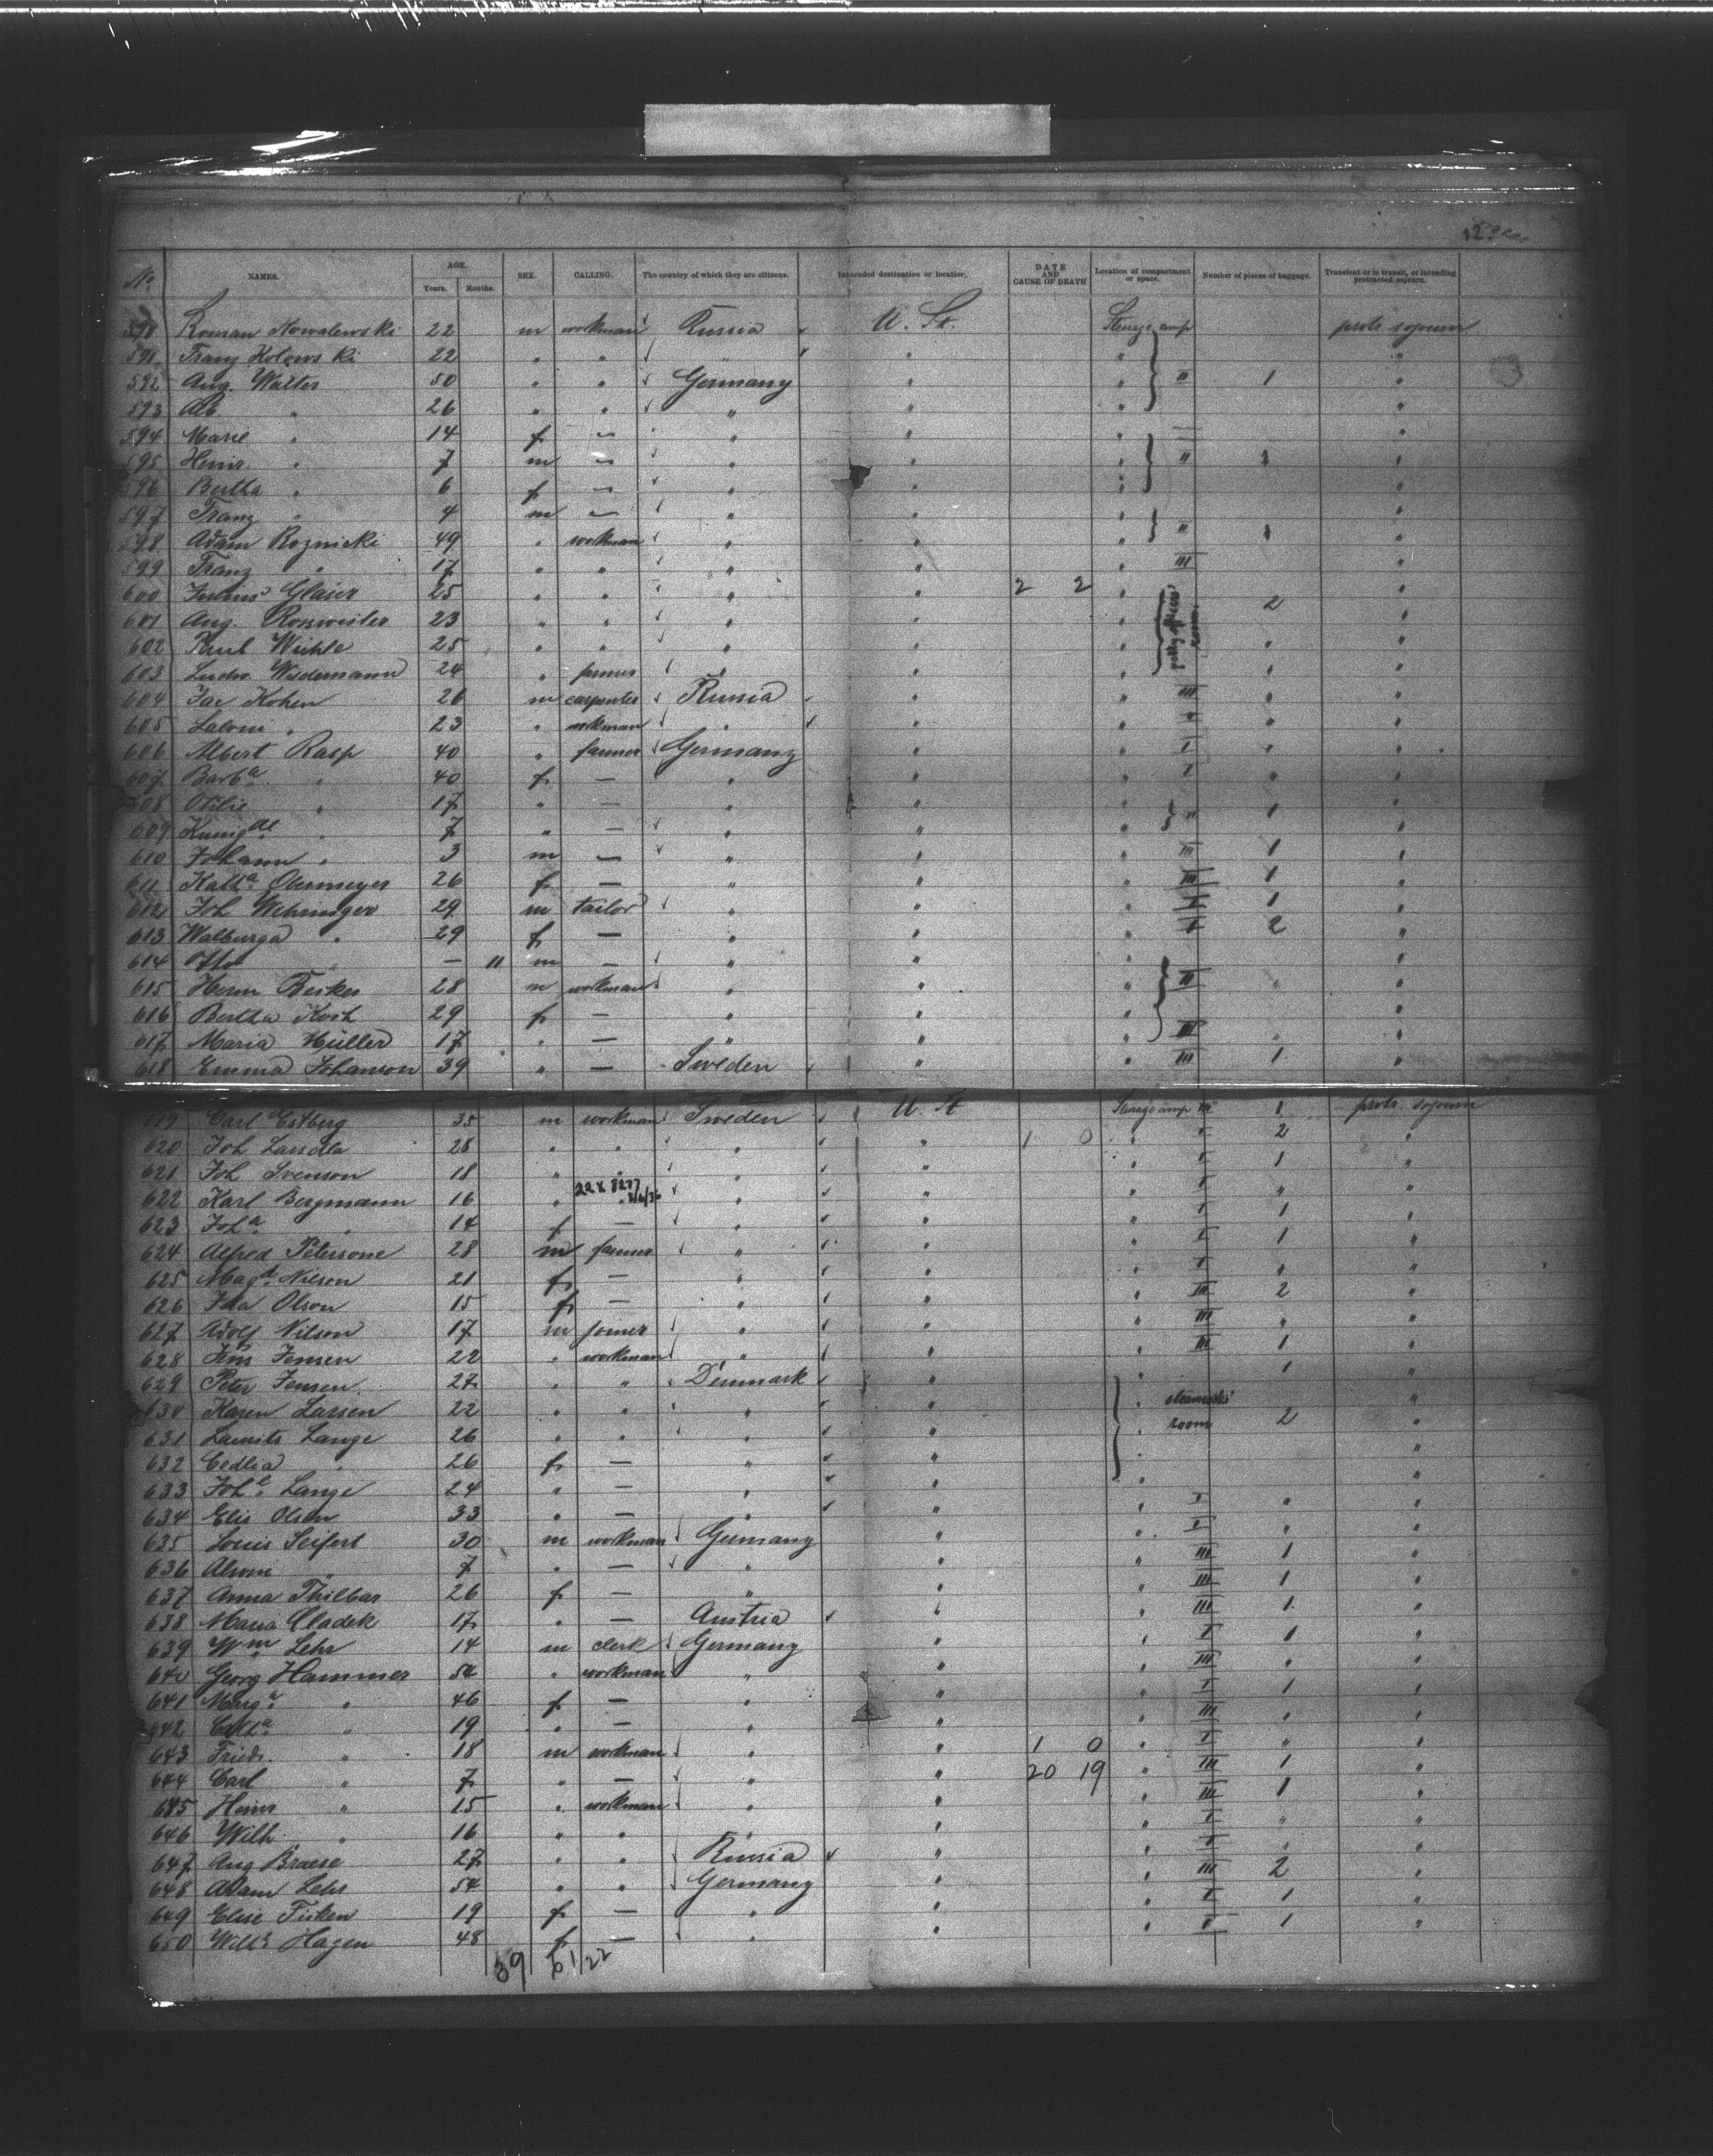 No. NAMES. AGE. Years. Months. SEX. CALLING. The country of which they are citizens. Intended destination or location. DATE AND CAUSE OF DEATH Location of compartment or space. Number of pieces of baggage. Transient or in transit, or intending protracted sojourn.
Roman Kowalewski 22 m workman Russia U. St. Steerage comp protr. sojourn
591 Franz Kolowski 22 " " " " " "
592 Aug. Walter 50 " " Germany " " II 1 "
593 Alb. " 26 " " " " " "
594 Marie " 14 f — " " " "
595 Heinr. " 7 m — " " " " 1 "
596 Bertha " 6 f — " " " "
597 Franz " 4 m — " " " "
598 Adam Roznicki 49 " workman " " " " 1 "
599 Franz " 17 " " " " " III "
600 Glaser 25 " " " " 2 2 " petty officers' room 2 "
601 Aug. Rossweiler 23 " " " " " "
602 Paul 25 " " " " " " "
603 Ludw. Wiedemann 24 " farmer " " " " "
604 Jac Kohen 26 m carpenter Russia " " III " "
605 " 23 " workman " " " " " "
606 Albert Rasp 40 " farmer Germany " " I " "
607 Barba. " 40 f — " " " I " "
608 Otilie " 17 " — " " " " 1 "
609 Kunigde. " 7 " — " " " "
610 Johann " 3 m — " " " III 1 "
611 Katha. Obermeyer 26 f — " " " III 1 "
612 Joh Wehringer 29 m tailor " " " I 1 "
613 Walburga " 29 f — " " " I 2 "
614 " — 11 m — " " " "
615 Herm 28 m workman " " " III " "
616 Bertha Koch 29 f — " " " "
617 Maria Müller 17 " — " " " III " "
618 Emma Johanson 39 " — Sweden " " III 1 "
619 Carl Estberg 35 m workman Sweden U. St Steerage comp III 1 protr. sojourn
620 Joh 28 " " " " 1 0 " I 2 "
621 Joh Svenson 18 " " " " " I 1 "
622 Karl Bergmann 16 " 22 X 8277 " " " I " "
623 Joha. " 14 f — " " " I 1 "
624 Alfred Petersone 28 m farmer " " " I 1 "
625 Magd. Nilson 21 f — " " " I " "
626 Ida Olson 15 f — " " " III 2 "
627 Adolf Nilson 17 m joiner " " " III " "
628 Jens Jensen 22 " workman " " " III 1 "
629 Peter Jensen 27 " " Denmark " " 1 "
630 Karen Larsen 22 " " " " " room 2 "
631 Lange 26 " " " " " "
632 " 26 f — " " " "
633 Johe. Lange 24 " — " " " "
634 Elis Olsen 33 " — " " " I " "
635 Louis Seifert 30 m workman Germany " " I " "
636 " 7 " — " " " III 1 "
637 Anna Thilbar 26 f — " " " III 1 "
638 Maria Cladek 17 " — Austria " " III 1 "
639 Wm. Lehr 14 m clerk Germany " " I 1 "
640 Georg Hammer 54 " workman " " " III " "
641 Marga. " 46 f — " " " I 1 "
642 Catha. " 19 " — " " " III " "
643 Friedr. " 18 m workman " " 1 0 " I " "
644 Carl " 7 " — " " 20 19 " III 1 "
645 Heinr " 15 " workman " " " III 1 "
646 Wilh. " 16 " " " " " I " "
647 Aug Braese 27 " " Russia " " I " "
648 Adam Lehr 54 " " Germany " " III 2 "
649 Elise Ficken 19 f — " " " I 1 "
650 Hagen 48 f — " " " I 1 "
39 61/22